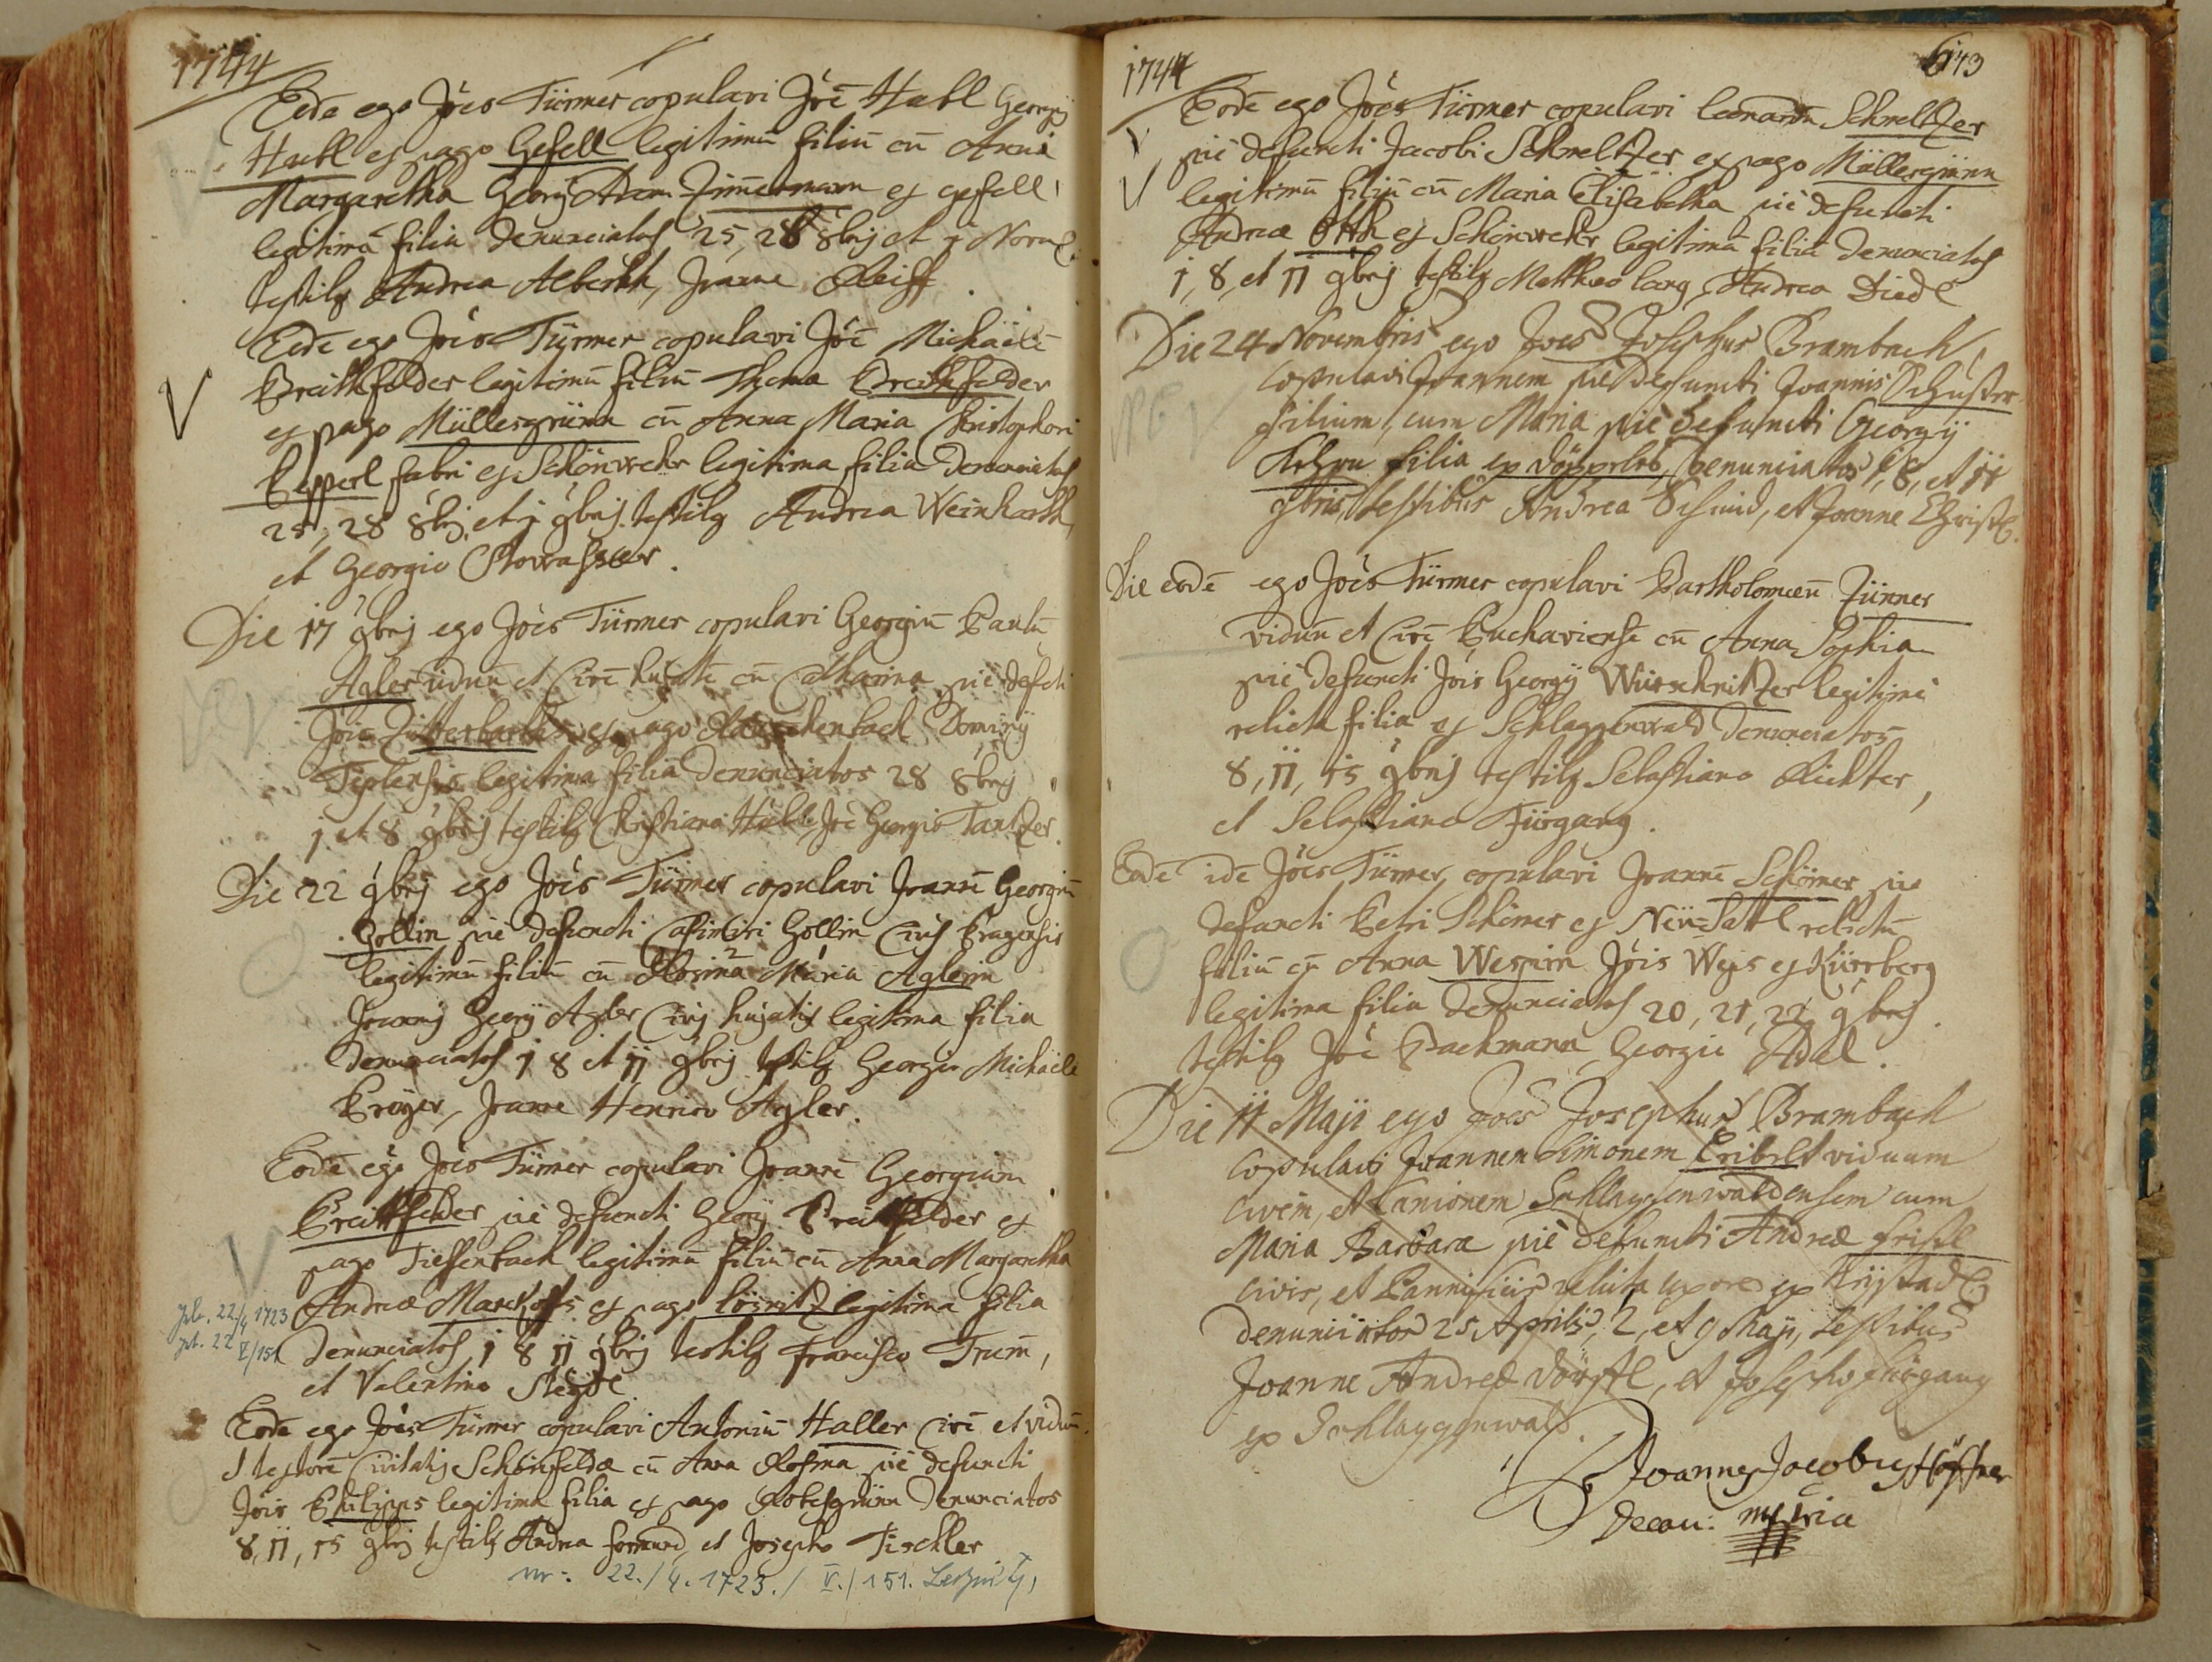 1744
Eodē ego Jões Türmer copulavi Jõē Habl Georgij
Habl ex pago Gefell legitimū filiū cū Anna
Margaretha Georgij Adam Zimmermann ex Gefell
legitimâ filia denunciatos 25, 28 8brij et 1 Novē.
testibus Andrea Alberth, Joanne Reiff.
Eodē ego Jões Türmer copulavi Jõē Michaelē
Breithfelder legitimū filiū Thoma Breithfelder
ex pago Müllersgrünn cū Anna Maria Christophori
Epperl fabri ex Schönwehr legitima filia denunciatos
25, 28 8brj et 1 9brij testibus Andrea Weinharth,
et Georgio
Die 17 9brij ego Jões Türmer copulavi Georgiū Paulū
Agler viduū et Civē hujatē cū Catharina piè defcti
Jõis ex pago Dominij
Teplensis legitima filia denunciatos 28 8brij
1 et 8 9brij testibus Christiano Habl, Jõē Georgio Tantzer.
Die 22 9brij ego Jões Türmer copulavi Joannē Georgiū
Gollin piè defuncti Casimiri Gollin Civis Pragensis
legitimū filiū cū Rosina Maria Aglerin
Joannis Georgij Agler Civis hujatis legitima filia
denunciatos 1 8 et 11 9brij testibus Georgio Michaele
Preÿer, Joanne Henrico Agler.
Eodē ego Jões Türmer copulavi Joannē Georgium
Breittfelder piè defuncti Georgij Breittfelder ex
pago Tieffenbach legitimū filiū cū Anna Margaretha
Andreæ ex pago legitima filia
denunciatos 1 8 11 9brij testibus Francisco
et Valentino
Eodē ego Jões Türmer copulavi Antoniū Haller Civē et viduū
et textorē Civitatis Schönfeldæ cū Anna Rosina piè defuncti
Jõis Philipps legitima filia ex pago Robesgrünn denunciatos
8, 11, 15 9brij testibus Andrea et Josepho Tischler
22./4. 1723./ V./151.
1744
Eodē ego Jões Türmer copulavi Leonardū Schmeltzer
piè defuncti Jacobi Schmeltzer ex pago Müllersgrünn
legitimū filiū cū Maria Elisabetha piè defuncti
Andreæ Otth ex Schönwehr legitimâ filiâ denunciatos
1, 8, et 11 9brij testibus Mattheo Lang, Andrea Diedl
Die 24 Novembris ego Joes Josephus Brambach
copulavi Joannem piè defuncti Joannis Schuster
filium, cum Maria piè defuncti Georgij
filia ex denunciatos 1, 8, et 11
9bris, testibus Andrea Schmid, et Joanne Christl.
Die eodē ego Jões Türmer copulavi Bartholomæū Zünner
viduū et Civē Buchaviensē cū Anna Sophia
piè defuncti Jõis Georgij Würschnitzer legitimè
relicta filia ex Schlaggenwald denunciatos
8, 11, 15 9brij testibus Sebastiano Richter,
et Sebastiano Fürgang.
Eodē idē Jões Türmer copulavi Joannē Schömer piè
defuncti Petri Schömer ex Neü=Sattl relictū
filiū cū Anna Wespin Jõis Weps ex
legitima filia denunciatos 20, 21, 22 9brij.
testibus Jõē Bachmann, Georgio Adal.
Die 11 Maji ego Joes Josephus Brambach
copulavi Joannem Simonem viduum
civem, et Lanionem Schlaggenwaldensem cum
Maria Barbara piè defuncti Andreæ Fristl
civis, et Pannificis relicta uxore ex
denunciatos 25 Aprilis, 2, et 9 Maji, testibus
Joanne Andrea Dörfftl, et Josepho Fürgang
ex Schlaggenwald.
Joannes Jacobus Höffner
Decan: mppria